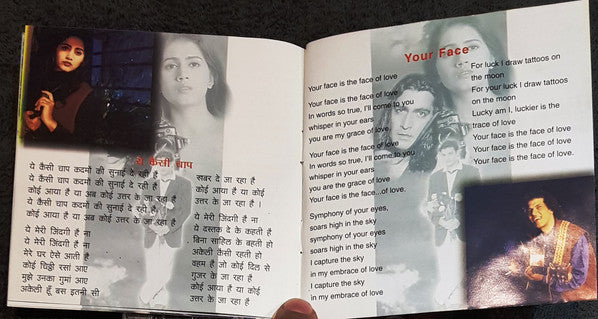 ये कैसी चाप
ये कैसी चाप कदमों की सुनाई दे रही है
ये कैसी चाप कदमों की सुनाई दे रही है
कोई आया है या अब कोई उत्तर के जा रहा है
ये कैसी चाप कदमों की सुनाई दे रही है
कोई आया है या अब कोई उत्तर के जा रहा है
ये मेरी जिंदगी है ना
ये मेरी जिंदगी है ना
मेरे घर ऐसे आती है
कोई चिठ्ठी रसां आए
मुझे उनका गुमां आए
अकेली हूँ बस इतनी सी
खबर दे जा रहा है
कोई आया है या कोई
उत्तर के जा रहा है ।
ये मेरी जिंदगी है ना
ये दस्तक दे के कहती है
बिना साहिल के बहती हो
अकेली कैसी रहती हो
वहम है जो कोई दिल से
गुजर के जा रहा है
कोई आया है या कोई
उत्तर के जा रहा है
Your Face
Your face is the face of love
Your face is the face of love
In words so true, I'll come to you
whisper in your ears
you are my grace of love
Your face is the face of love
In words so true, I'll come to you
whisper in your ears
you are the grace of love
Your face is the face...of love.
Symphony of your eyes,
soars high in the sky
symphony of your eyes
soars high in the sky
I capture the sky
in my embrace of love
I capture the sky
in my embrace of love
For luck I draw tattoos on
the moon
For your luck I draw tattoos
on the moon
Lucky am I, luckier is the
trace of love
Your face is the face of love
Your face is the face of love
Your face is the face of love.